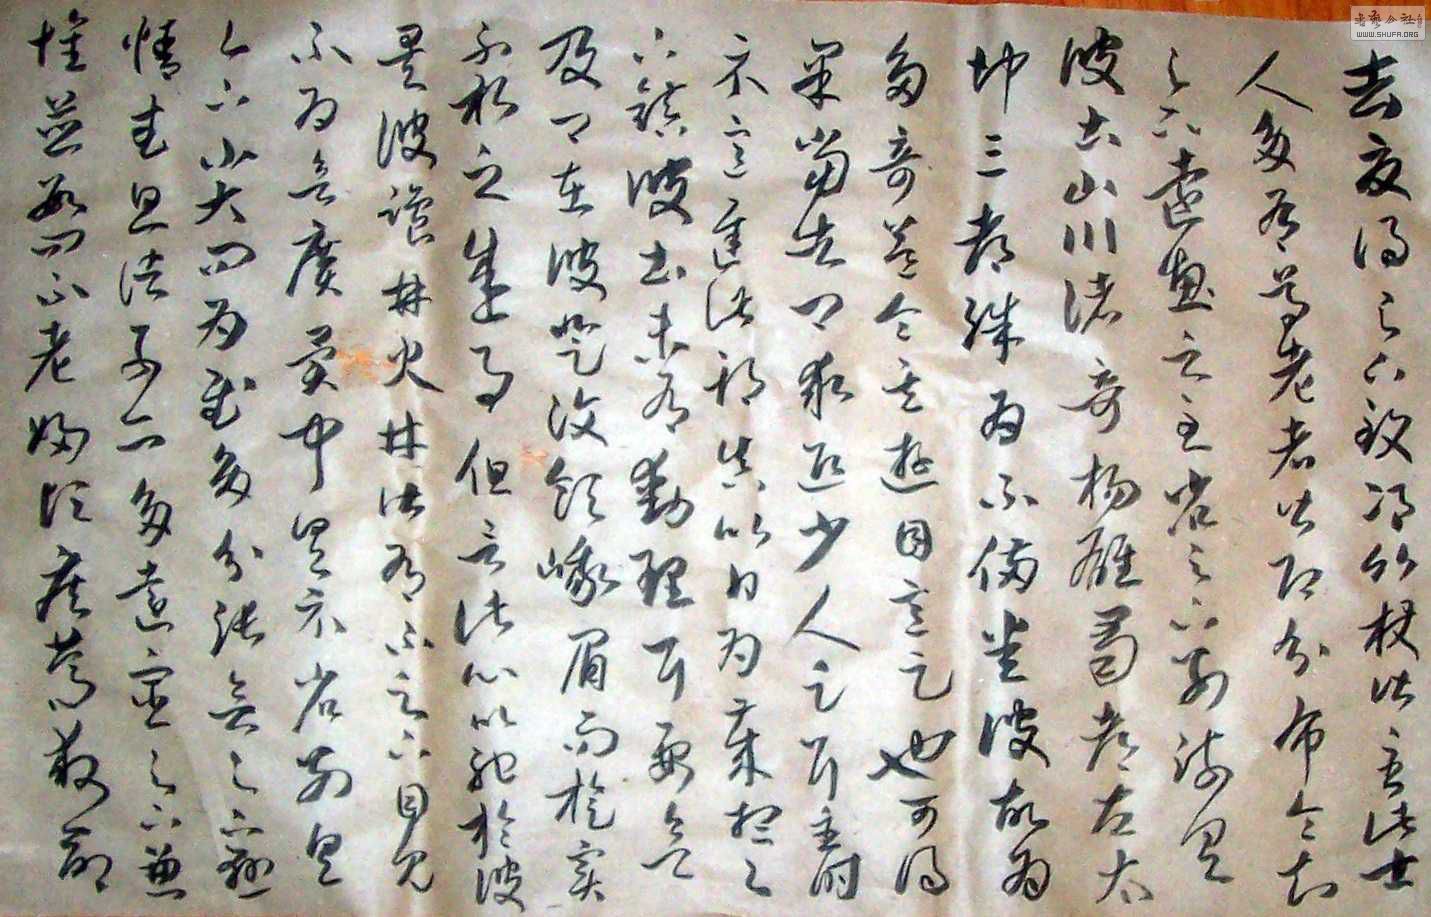 去夏得足下致邛竹杖皆至此士
人多有尊老者皆即分布令知
足下遠惠之至省足下別疏具
彼土山川諸奇楊雄蜀都左太
沖三都殊為不備悉彼故為
多奇益令其遊目意足也可得
果當告卿求迎少人足耳至時
示意遲此期真以日為歲想足
下鎮彼土未有動理耳要欲
及卿在彼登汶領峨眉而旋實
不朽之盛事但言此心以馳於彼
矣彼鹽井火井皆有不足下目見
不為欲廣異聞具示省別具
足下小大問為慰多分張念足下懸
情武昌諸子亦多遠宦足下兼
懷並數問不老婦頃疾篤救命
WWW.SHUFA.ORG